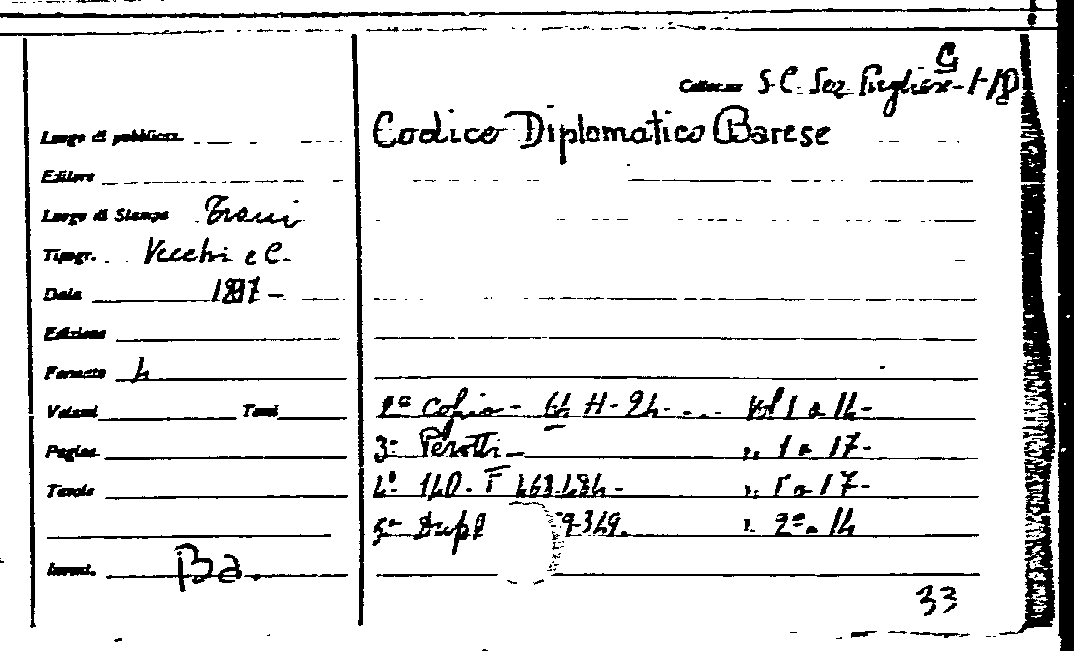 Collocaz. S.C. Sez. Pugliese - G - 1-18
Luogo di pubblicaz. Codice Diplomatico Barese
Editore
Luogo di Stampa Trani
Tipogr. Vecchi e C.
Data 1897 -
Edizione
Formato 4
Volumi Tomi 2ª Copia - 64 H - 24 - ... Vol 1 a 14 -
Pagine 3ª Perotti - " 1 a 17 -
Tavole 4ª 140. F 463-484 - " 1 a 17 -
5ª Dupl 9-349. " 2º a 14
Invent. Ba.
33